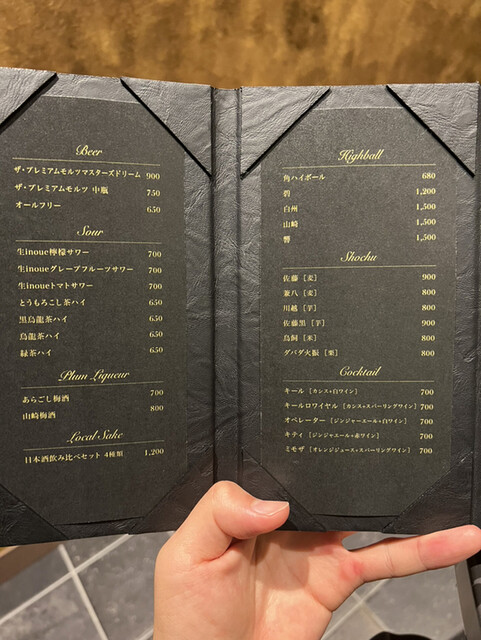 Beer
ザ・プレミアムモルツマスターズドリーム 900
ザ・プレミアムモルツ 中瓶 750
オールフリー 650
Sour
生inoue檸檬サワー 700
生inoueグレープフルーツサワー 700
生inoueトマトサワー 700
とうもろこし茶ハイ 650
黒烏龍茶ハイ 650
烏龍茶ハイ 650
緑茶ハイ 650
Plum Liqueur
あらごし梅酒 700
山崎梅酒 800
Local Sake
日本酒飲み比べセット 4種類 1,200
Highball
角ハイボール 680
碧 1,200
白州 1,500
山崎 1,500
響 1,500
Shochu
佐藤 [麦] 900
兼八 [麦] 800
川越 [芋] 800
佐藤黒 [芋] 900
鳥飼 [米] 800
ダバダ火振 [栗] 800
Cocktail
キール [カシス+白ワイン] 700
キールロワイヤル [カシス+スパーリングワイン] 700
オペレーター [ジンジャーエール+白ワイン] 700
キティ [ジンジャエール+赤ワイン] 700
ミモザ [オレンジジュース+スパーリングワイン] 700